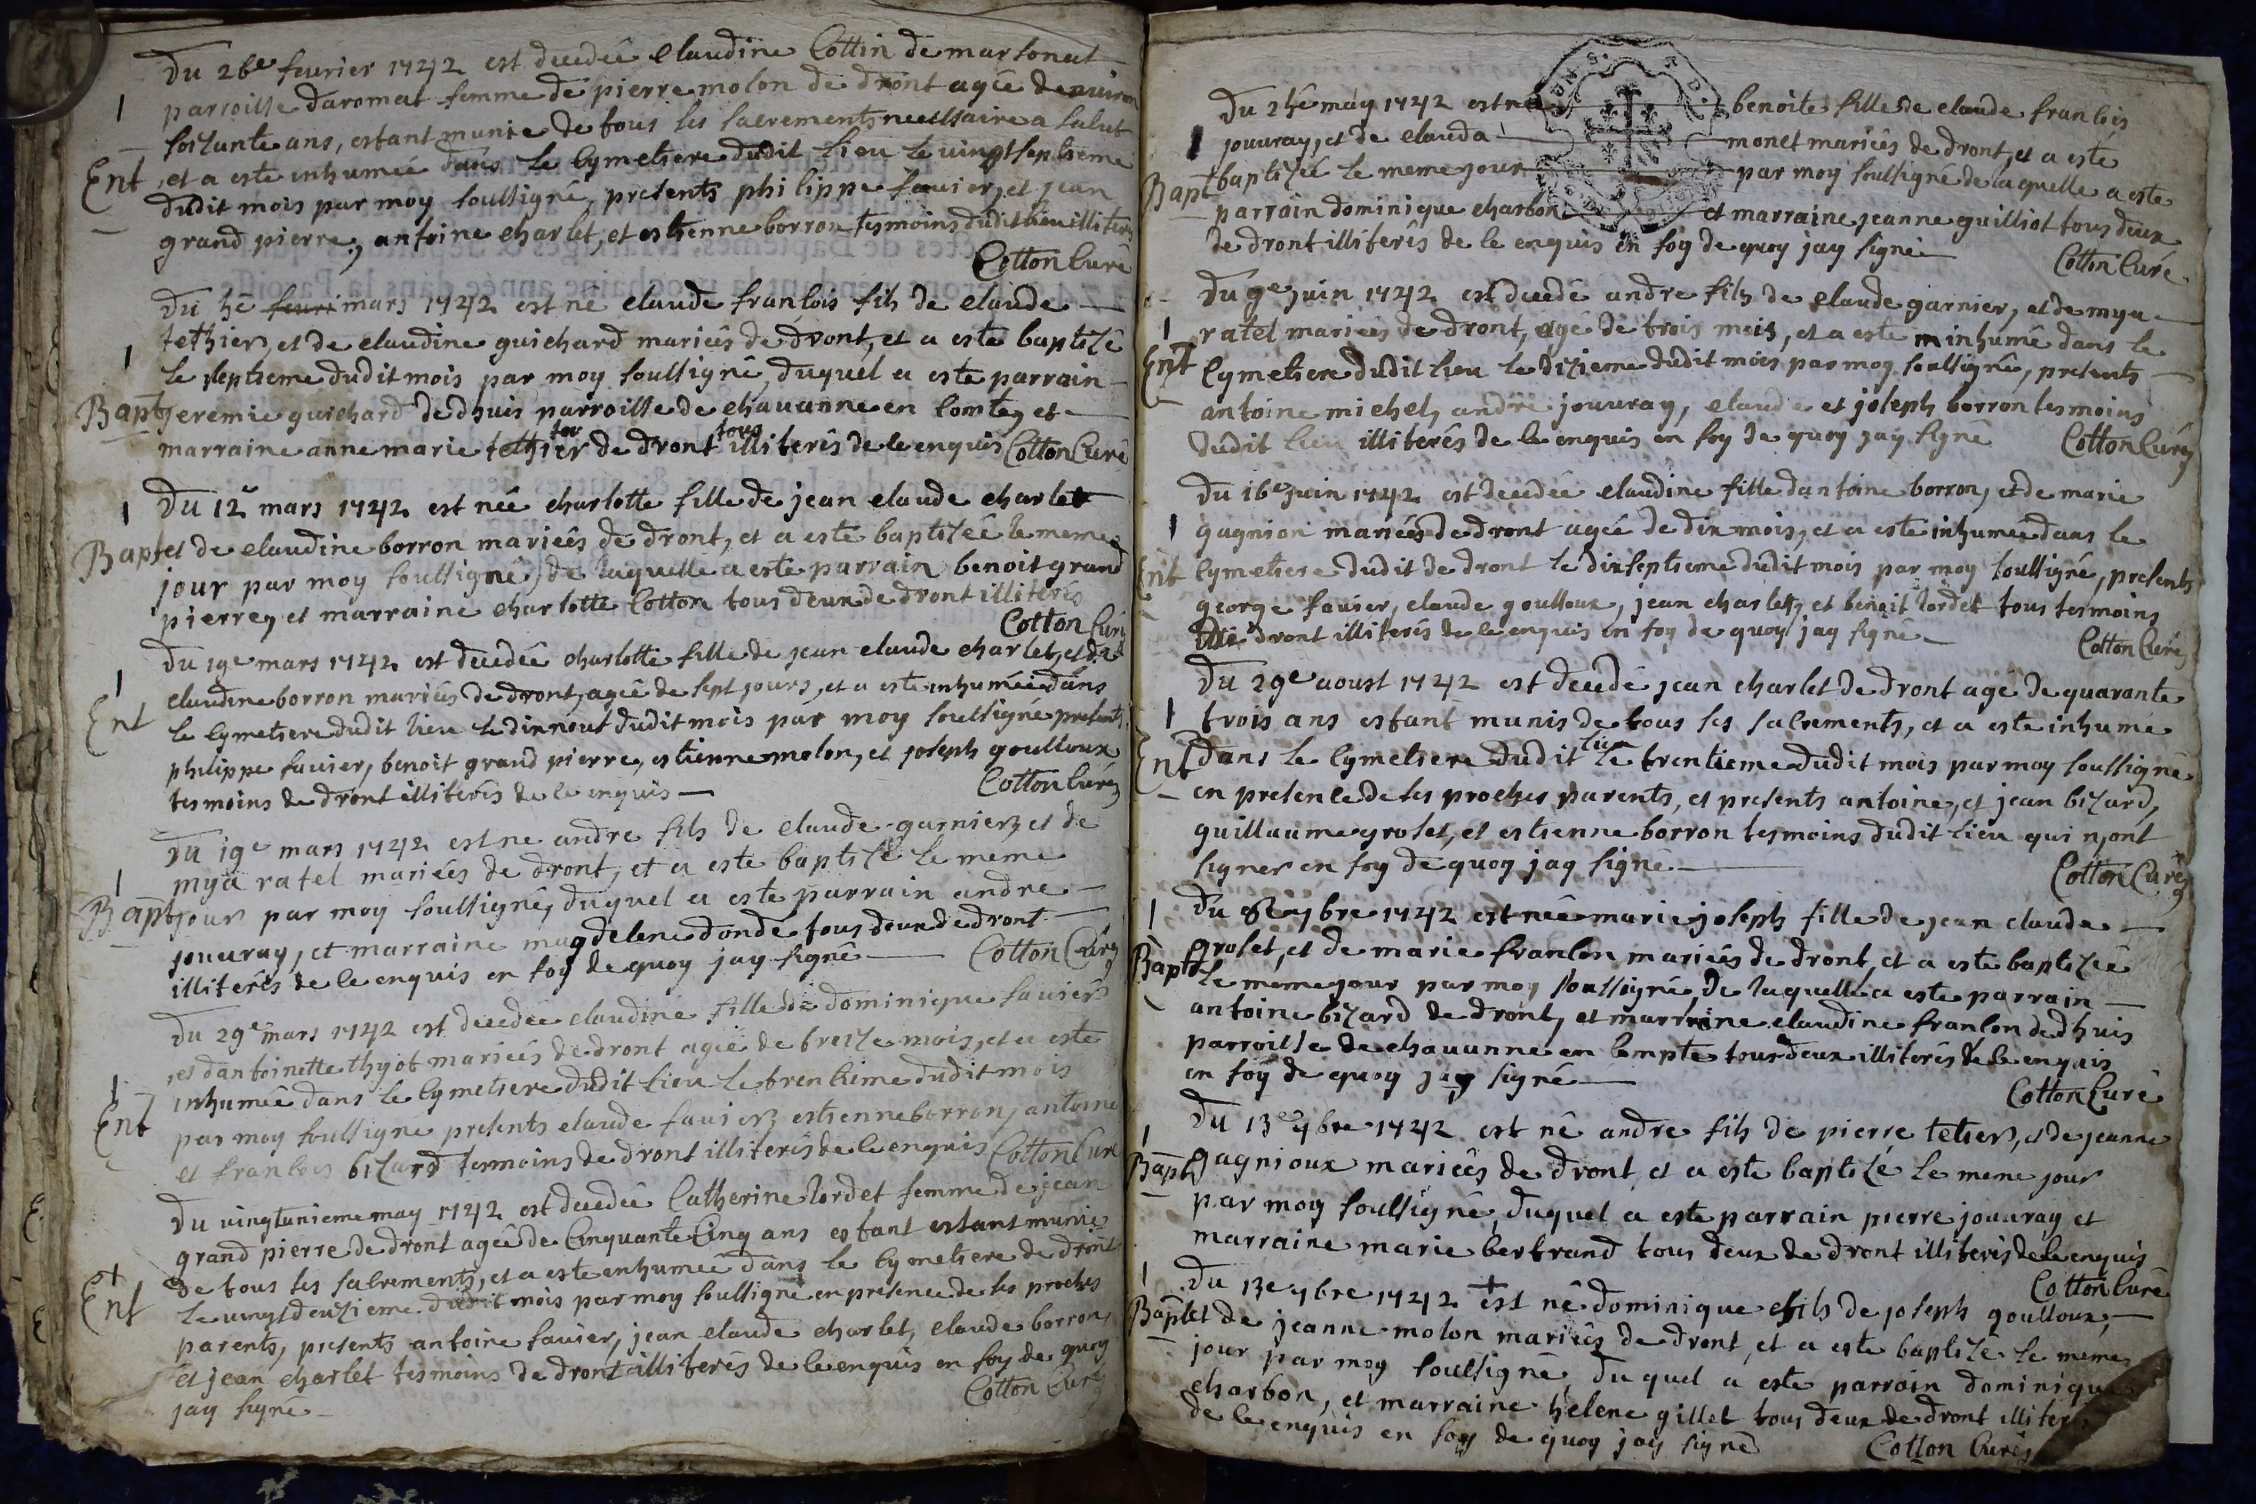 Du 26e feurier 1742 est decedée claudine Cottin de marsonat
parroisse daromat femme de pierre molon de dront agée denuiron
soizante ans, estant munie de tous les sacrements necessaire a salut
et a este inhumée dans le cymetiere dudit lieu le vingtseptieme
Ent
dudit mois par moy soussigné, presents philippe fauier, et jean
grand pierre, antoine charlet, et estienne borron tesmoins dudit lieu illiterés
Cotton Curé
Du 5e feuri mars 1742 est né claude francois fils de claude
tethier, et de claudine guichard mariés de dront, et a este baptizé
le septieme dudit mois par moy soussigné, duquel a este parrain
Bapt
jeremie guichard de dhuis parroisse de chauanne en comte, et
tier tous
marraine anne marie tethier de dront illiterés de ce enquis Cotton Curé
Du 12e mars 1742 est née charlotte fille de jean claude charlet
Bapt
et de claudine borron mariés de dront, et a este baptizée le meme
jour par moy soussigné, de laquelle a este parrain benoit grand
pierre, et marraine charlotte Cotton tous deux de dront illiterés
Cotton Curé
Du 19e mars 1742 est decedée charlotte fille de jean claude charlet, et de
claudine borron mariés de dront, agée de sept jours, et a este inhumée dans
Ent
le cymetiere dudit lieu le dixneuf dudit mois par moy soussigné presents
philippe fauier, benoit grand pierre, estienne molon, et joseph goulloux
tesmoins de dront illiterés de ce enquis
Cotton Curé
Du 19e mars 1742 est ne andre fils de claude garnier, et de
mya ratel mariés de dront, et a este baptizé le meme
Bapt
jour par moy soussigné, duquel a este parrain andre
jouuray, et marraine magdelene donde tous deux de dront
illiterés de ce enquis en foy de quoy jay signé Cotton Curé
Du 29e mars 1742 est decedée claudine fille de dominique fauier
et dantoinette thyot mariés de dront agée de treize mois, et a este
Ent
inhumée dans le cymetiere dudit lieu le trentieme dudit mois
par moy soussigne presents claude fauier, estienne borron, antoine
et francois bizard tesmoins de dront illiterés de ce enquis Cotton Curé
Du vingtunieme may 1742 est decedée Catherine lordet femme de jean
grand pierre de dront agée de Cinquante Cinq ans estant estant munie
de tous les sacrements, et a este enhumée dans le cymetiere de dront
Ent
le vingtdeuzieme dudit mois par moy soussigné en presence de ses proches
parents, presents antoine fauier, jean claude charlet, claude borron,
et jean charlet tesmoins de dront illiterés de ce enquis en foy de quoy
jay signé
Cotton Curé
Du 25e may 1742 est née benoite fille de claude francois
jouuray, et de clauda monet mariés de dront, et a esté
Bapt
baptizée le meme jour par moy soussigne de laquelle a este
parrain dominique charbon et marraine jeanne guilliot tous deux
de dront illiterés de ce enquis en foy de quoy jay signé
Cotton Curé
Du 9e juin 1742 est decedé andre fils de claude garnier, et de mya
ratel mariés de dront, agé de trois mois, et a este inhumé dans le
Ent
cymetiere dudit lieu le dizieme dudit mois par moy soussigné, presents
antoine michel, andre jouuray, claude et joseph borron tesmoins
dudit lieu illiterés de ce enquis en foy de quoy jay signé Cotton Curé
Du 16e juin 1742 est decedée claudine fille dantoine borron, et de marie
gagnion mariés de dront agée de dix mois, et a este inhumée dans le
Ent
cymetiere dudit de dront le dixseptieme dudit mois par moy soussigné, presents
george fauier, claude goulloux, jean charlet, et benoit lordet tous tesmoins
de dront illiterés de ce enquis en foy de quoy jay signé
Cotton Curé
Du 29e aoust 1742 est decedé jean charlet de dront agé de quarante
trois ans estant munis de tous ses sacrements, et a este inhumé
lieu
Ent
dans le cymetiere dudit le trentieme dudit mois par moy soussigné
en presence de ses proches parents, et presents antoine, et jean bizard,
guillaume groset, et estienne borron tesmoins dudit lieu qui nont
signer en foy de quoy jay signé
Cotton Curé
Du 7bre 1742 est née marie joseph fille de jean claude
groset, et de marie franlon mariés de dront, et a este baptizée
Bapt
le meme jour par moy soussigné, de laquelle a este parrain
antoine bizard de dront, et marraine claudine franlon de dhuis
parroisse de chauanne en compte tous deux illiterés de ce enquis
en foy de quoy jay signé
Cotton Curé
Du 13e 7bre 1742 est né andre fils de pierre tetier, et de jeanne
Bapt
gagnioux mariés de dront, et a este baptizé le meme jour
par moy soussigné, duquel a este parrain pierre jouuray et
marraine marie bertrand tous deux de dront illiterés de ce enquis
Cotton Curé
Du 13e 7bre 1742 est né dominique fils de joseph goulloux,
Bapt
et de jeanne molon mariés de dront, et a este baptizé le meme
jour par moy soussigné duquel a este parrain dominique
charbon, et marraine helene gillet tous deux de dront illiterés
de ce enquis en foy de quoy jay signé
Cotton Curé